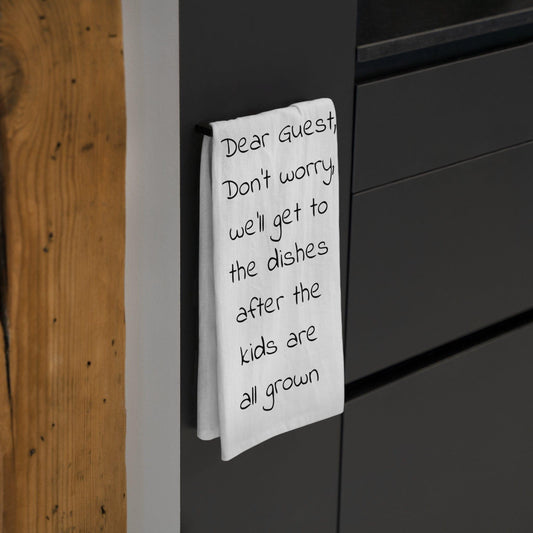 Dear Guest,
Don't worry,
we'll get to
the dishes
after the
kids are
all grown